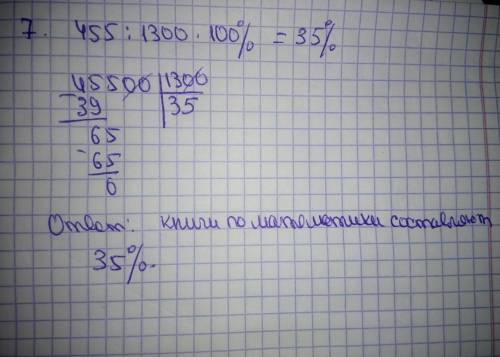 7. 455 : 1300 · 100% = 35%
45500 | 1300
- 39 | 35
65
- 65
0
Ответ: книги по математики составляют
35%.